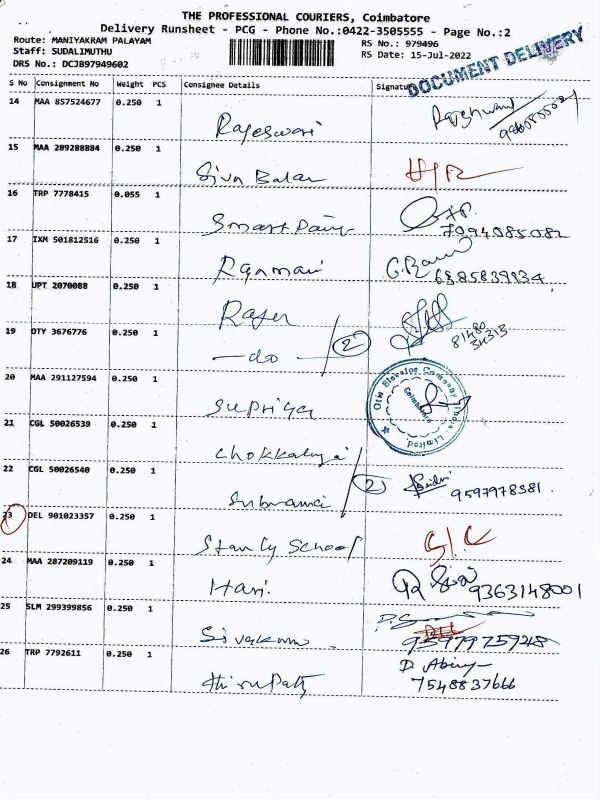 THE PROFESSIONAL COURIERS, Coimbatore
Delivery Runsheet - PCG - Phone No.:0422-3505555 - Page No.:2
Route: MANIYAKRAM PALAYAM
RS No.: 979496
Staff: SUDALIMUTHU
RS Date: 15-Jul-2022
DRS No.: DCJB97949602
DOCUMENT DELIVERY
S No Consignment No Weight PCS Consignee Details Signature
14 MAA 857524677 0.250 1 Rajeswari
15 MAA 289288884 0.250 1 Siva Balan
16 TRP 7778415 0.055 1 Smart
7094085082
17 IXM 501812516 0.250 1
18 UPT 2070088 0.250 1
19 DTY 3676776 0.250 1 -do- 2
81480
20 MAA 291127594 0.250 1 Supriya
Otis Elevator Company (India) Limited
Coimbatore
21 CGL 50026539 0.250 1
22 CGL 50026540 0.250 1 2 9597978381
23 DEL 901023357 0.250 1 Stanly School
24 MAA 287209119 0.250 1 Hari. 9363148001
25 SLM 299399856 0.250 1
26 TRP 7792611 0.250 1
7548837666